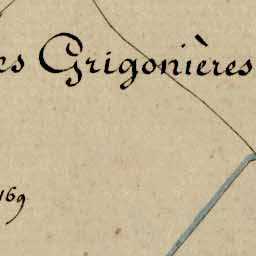 es Grigonières
169